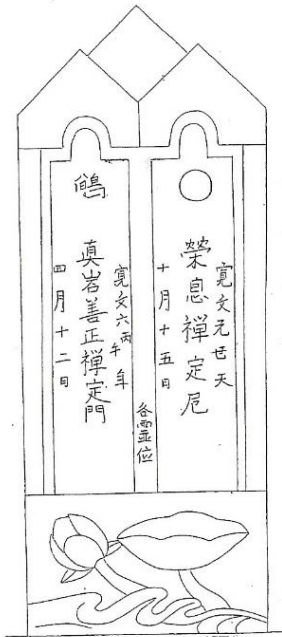 寛文元丑天
榮息禅定尼
十月十五日
各霊位
寛文六丙午年
眞岩善正禅定門
四月十二日